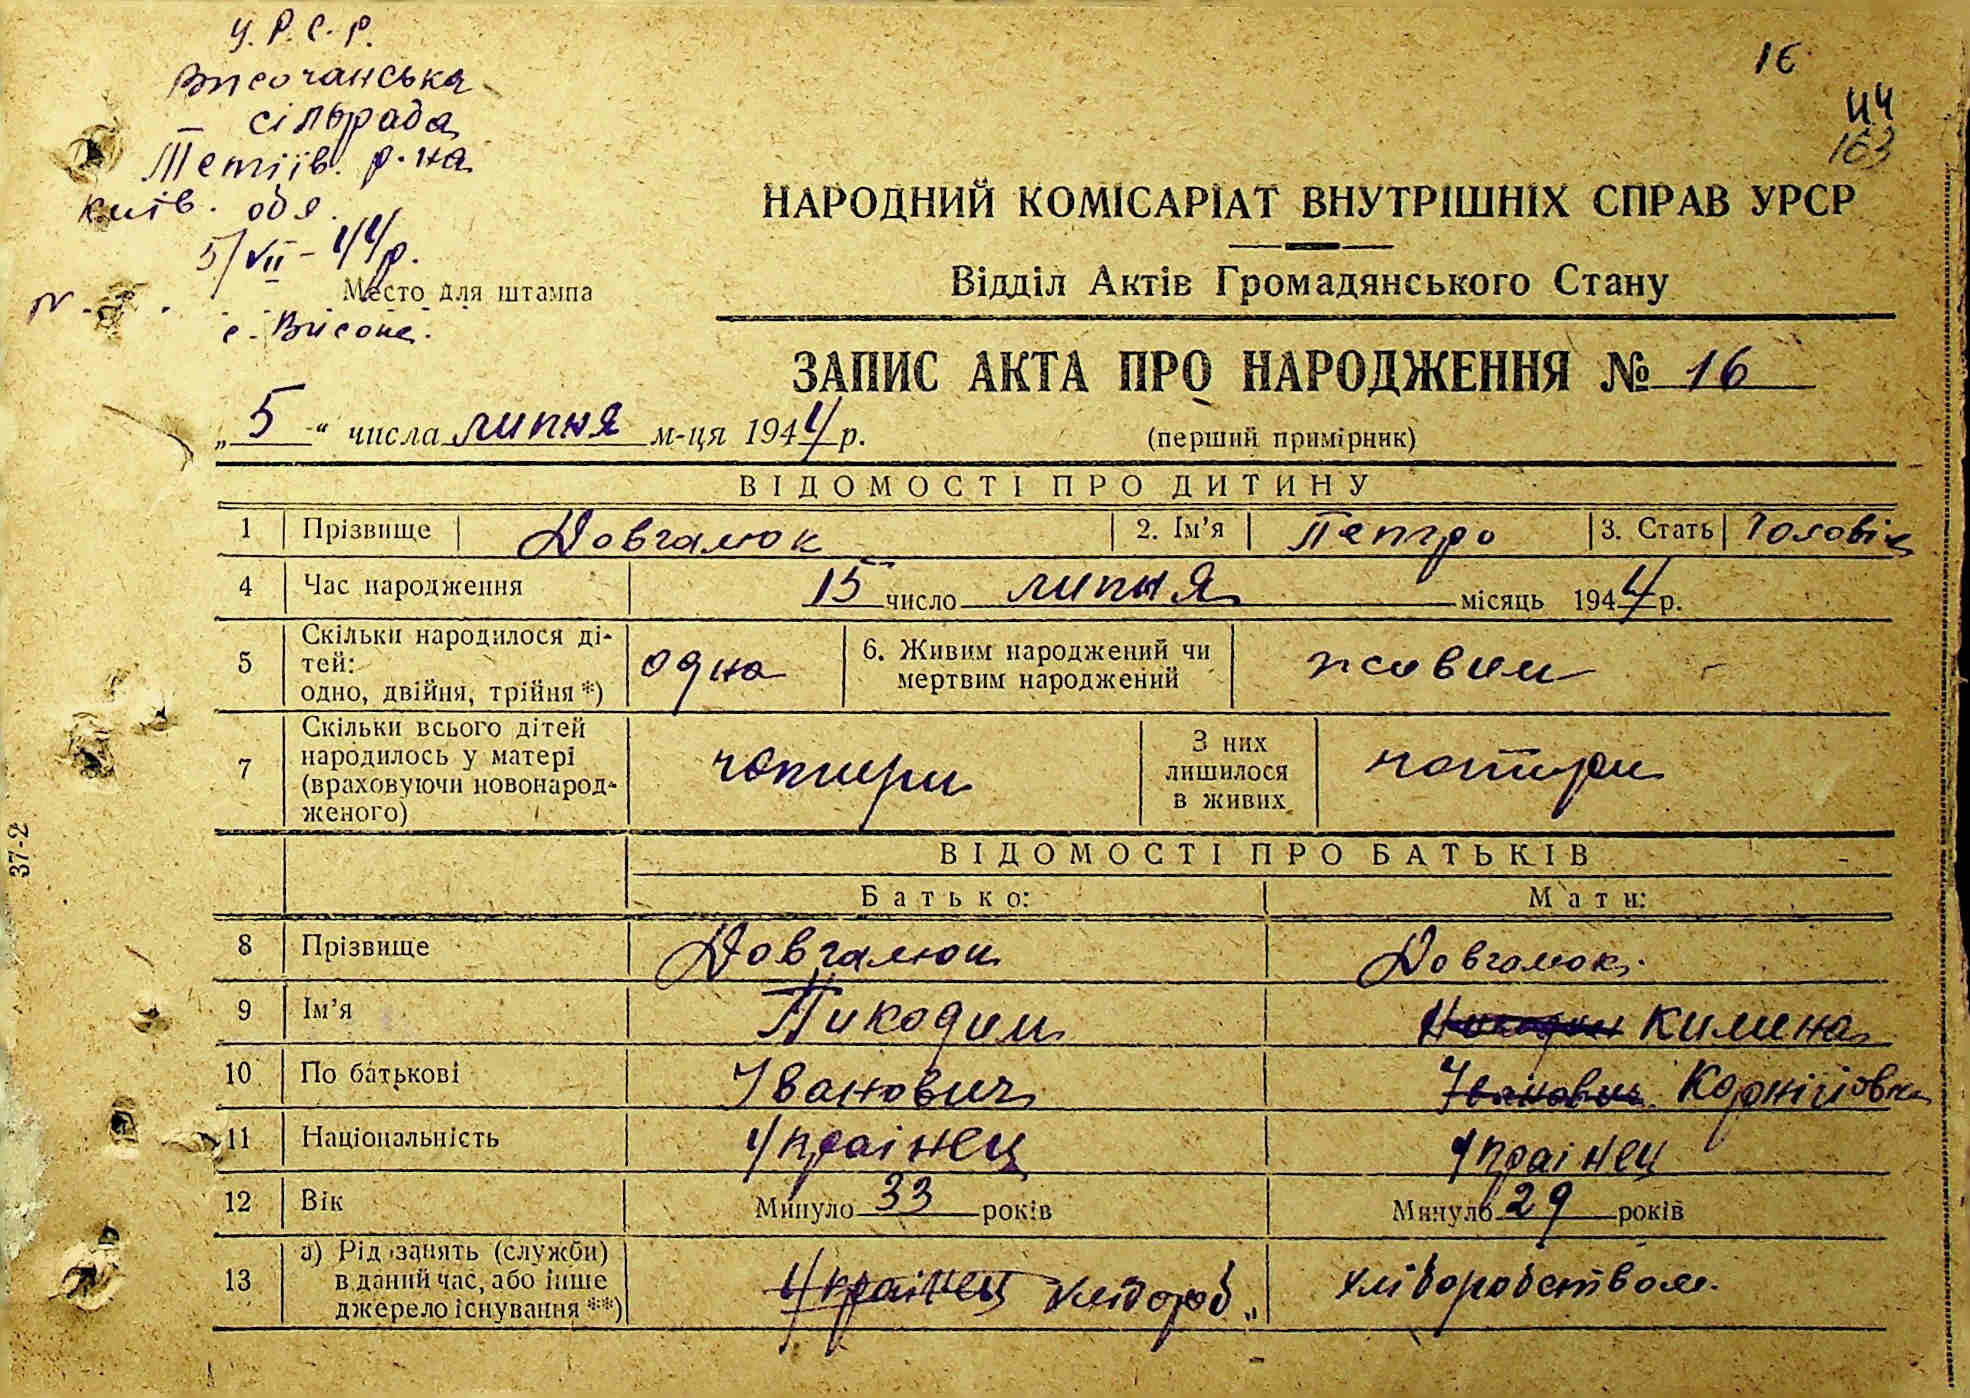 У.Р.С.Р.
Височанська
сільрада
Тетіїв. р-на
Київ. обл.
5/VII-44р.
Место для штампа
с. Високе.
16
44
163
НАРОДНИЙ КОМІСАРІАТ ВНУТРІШНІХ СПРАВ УРСР
Відділ Актів Громадянського Стану
ЗАПИС АКТА ПРО НАРОДЖЕННЯ № 16
„5“ числа липня м-ця 1944 р.
(перший примірник)
ВІДОМОСТІ ПРО ДИТИНУ
1 Прізвище Довгалюк 2. Ім'я Петро 3. Стать Чоловік
4 Час народження 15 число липня місяць 1944 р.
5 Скільки народилося ді-
тей:
одно, двійня, трійня *) одна
6. Живим народжений чи
мертвим народжений живим
7 Скільки всього дітей
народилось у матері
(враховуючи новонарод-
женого) чотири
З них
лишилося
в живих чотири
ВІДОМОСТІ ПРО БАТЬКІВ
Батько: Мати:
8 Прізвище Довгалюк Довгалюк.
9 Ім'я Никодим Никодим Килина
10 По батькові Іванович Іванович Корніїовна
11 Національність Українец Українец
12 Вік Минуло 33 років Минуло 29 років
13 а) Рід занять (служби)
в даний час, або інше
джерело існування **) Українец хлібороб хліборобством.
37-2